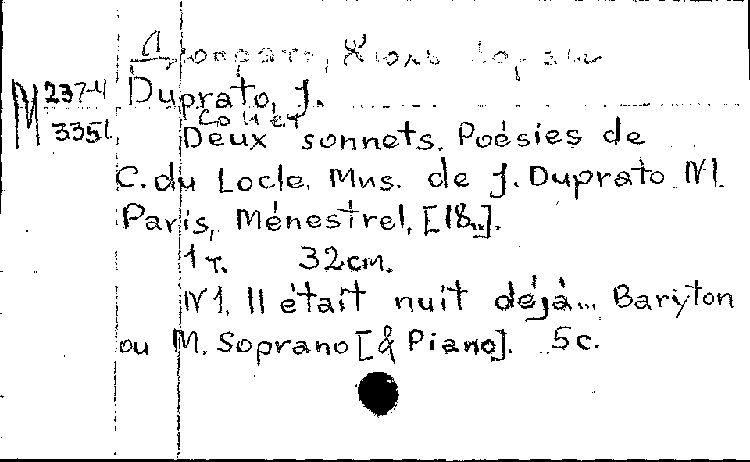 Дюпрато, Жюль Лоран
M 237-4 Duprato, J.
3351 Сонет
Deux sonnets. Poésies de
C. du Locle. Mus. de J. Duprato N1.
Paris, Ménestrel, [18..].
1 т. 32cm.
N1. Il était nuit déjà... Baryton
ou M. Soprano [& Piano]. 5 c.